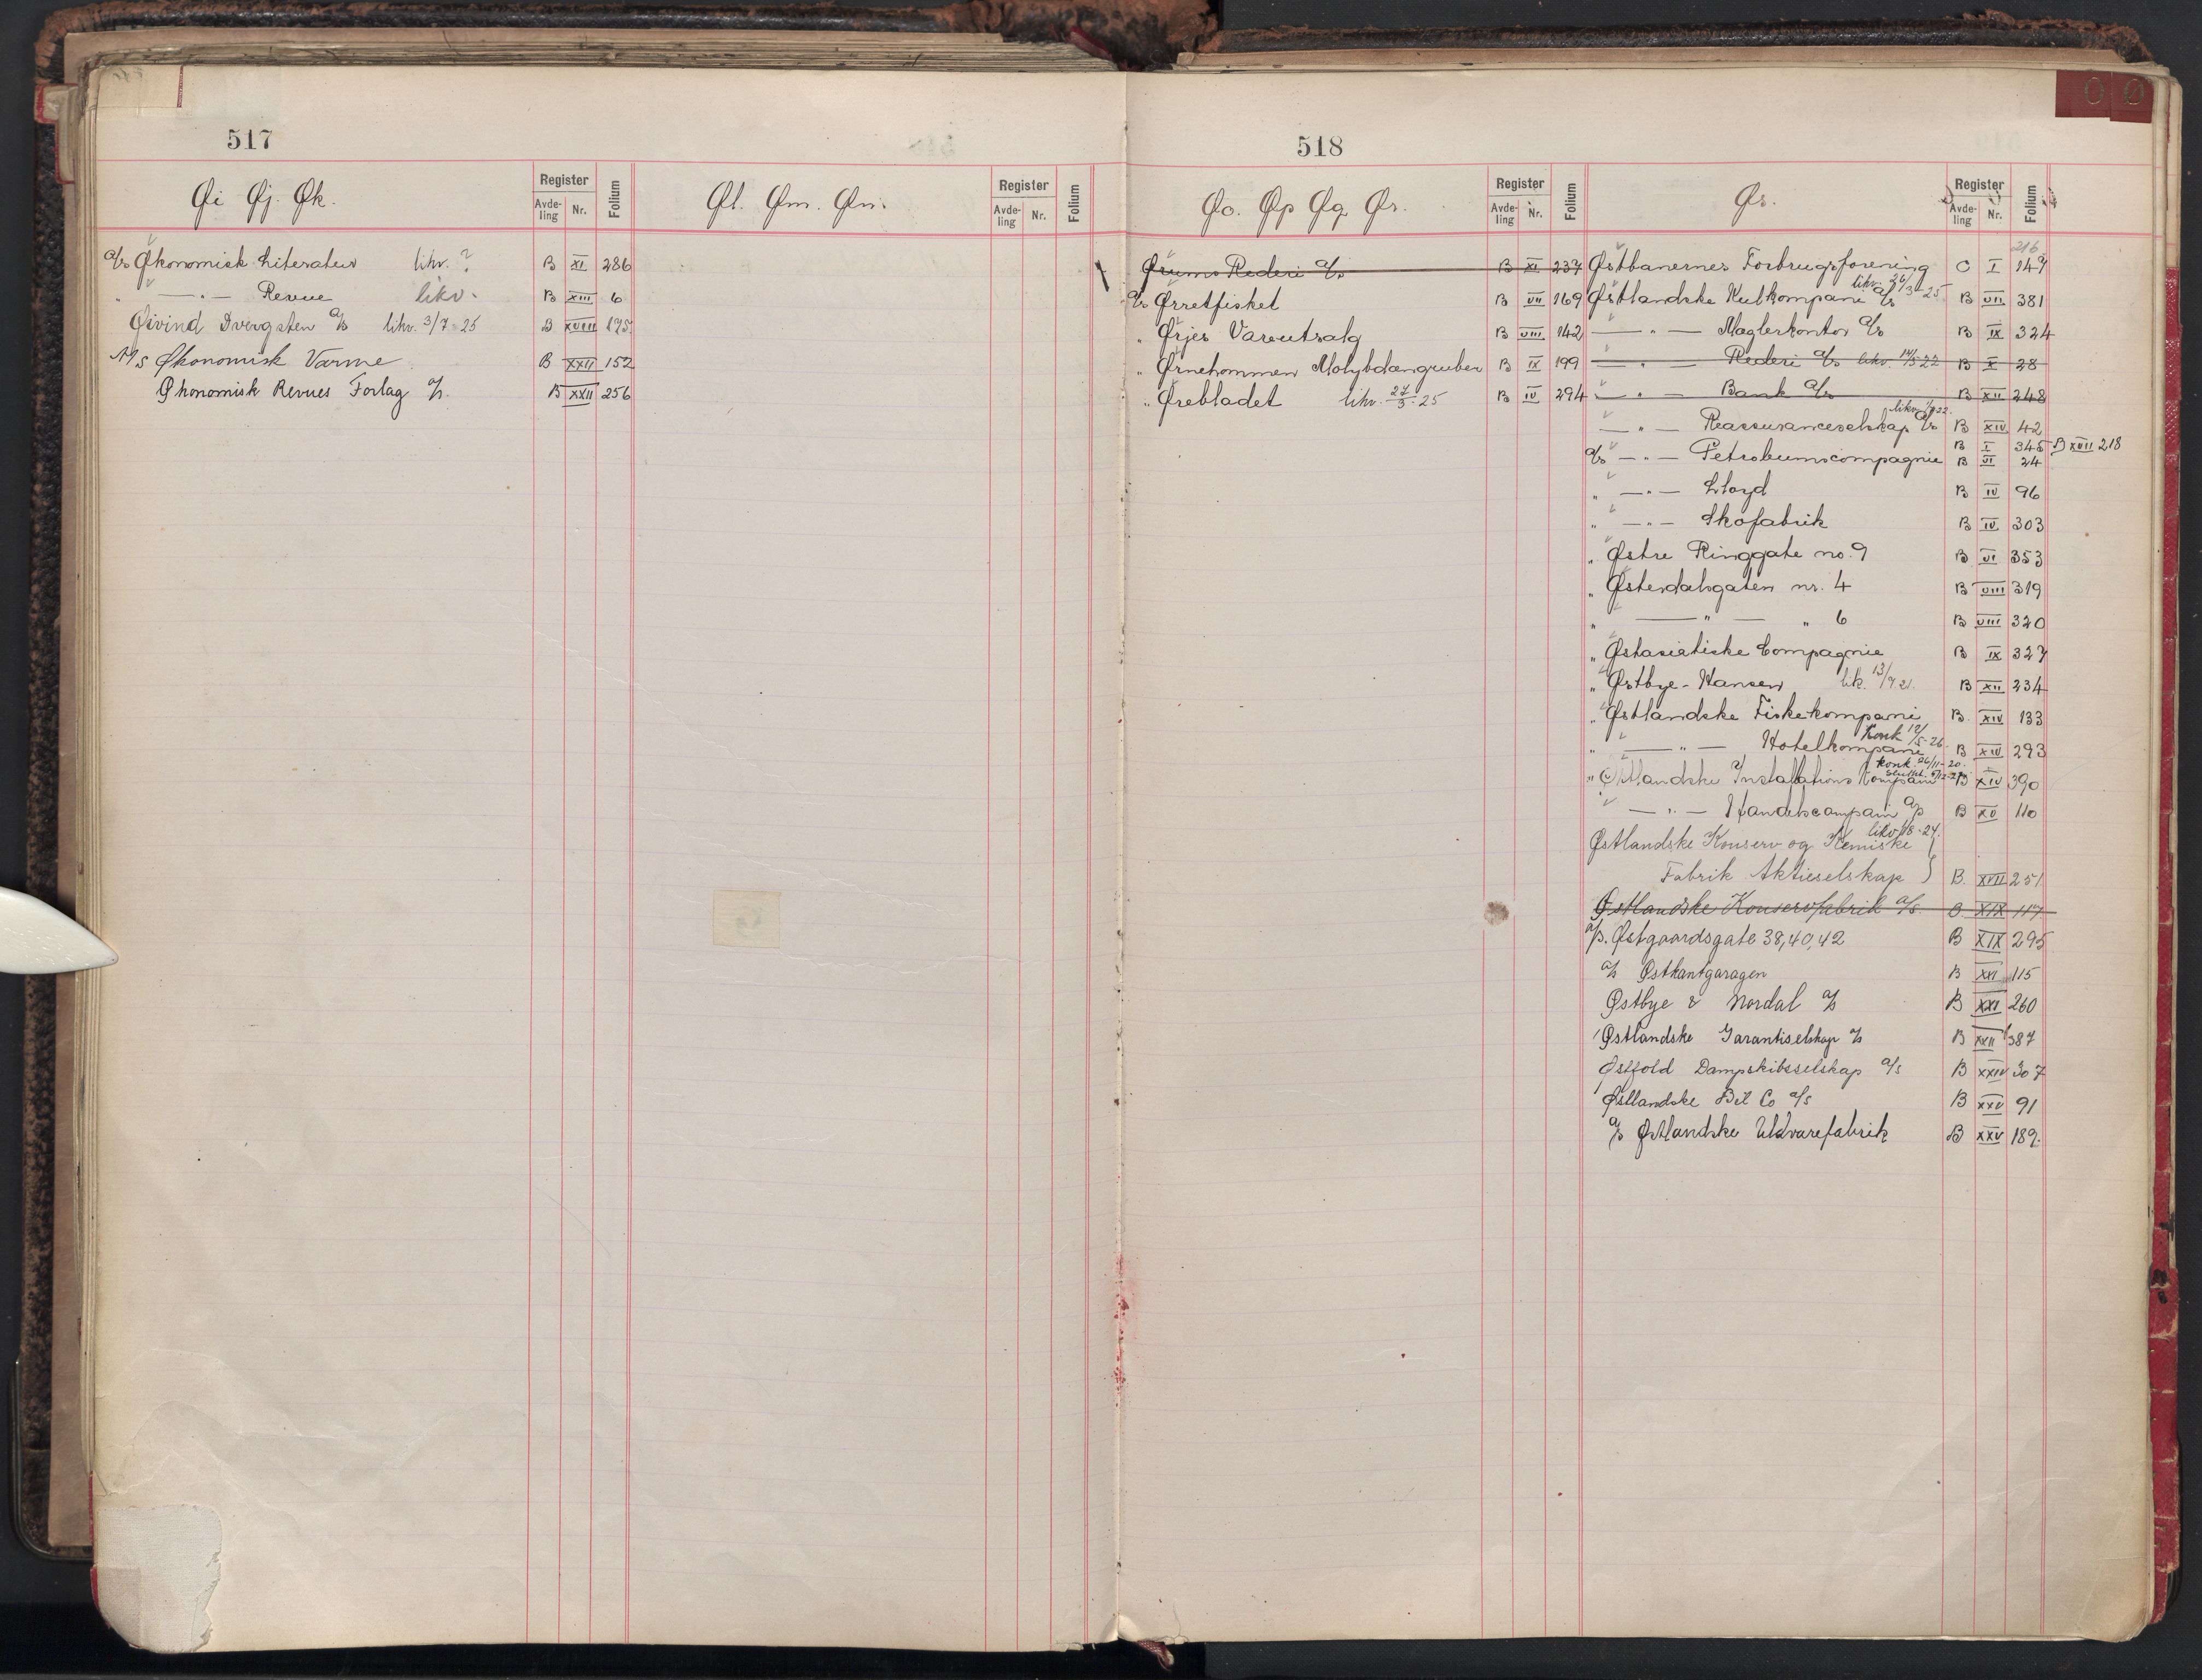 517
Øi Øj. Øk.
Register
Avde-ling Nr. Folium
Øl. Øm. Øn.
Register
Avde-ling Nr. Folium
A/s Økonomisk Literatur likv. ? B XI 286
" — " — Revue likv. B XIII 6
Øivind Dvergsten A/s likv. 3/7-25 B XVIII 195
A/s Økonomisk Varme B XXII 152
Økonomisk Revues Forlag A/s. B XXII 256
518
Øo. Øp Øq Ør.
Register
Avde-ling Nr. Folium
Øs.
Register
Avde-ling Nr. Folium
Ørums Rederi A/s B XI 237
A/s Ørretfisket B VII 169
" Ørjes Vareutsalg B VIII 142
" Ørnehommen Molybdængruber B IX 199
" Ørebladet likv. 27/3-25 B IV 294
216
Østbanernes Forbrugsforening C I 147
likv. 26/3-25
Østlandske Kulkompani A/s B VII 381
— " — Mæglerkontor A/s B IX 324
— " — Rederi A/s likv. 14/5 22 B X 28
— " — Bank A/s B XII 248
— " — Reassuranceselskap A/s B XIV 42
A/s — " — Petroleumscompagnie B I 345 B XVII 218
B VI 24
" — " — Lloyd B IV 96
" — " — Skofabrik B IV 303
" Østre Ringgate no. 9 B VI 353
" Østerdalsgaten nr. 4 B VIII 319
" — " — " 6 B VIII 320
" Østasiatiske Compagnie B IX 327
" Østbye-Hansen lik. 13/9 21. B XII 234
" Østlandske Fiskekompani B. XIV 133
Konk 12/5-26
" — " — Hotelkompani B XIV 293
konk. 26/11-20.
" Østlandske Installations Kompani B XIV 390
— " — Handelscompani A/s B XV 110
likv. /8-24.
Østlandske Konserv og Kemiske
Fabrik Aktieselskap } B. XVII 251
Østlandske Konservfabrik A/s. B XIX 117
A/s. Østgaardsgate 38, 40, 42 B XIX 295
A/s Østkantgaragen B XXI 115
Østbye & Nordal A/s B XXI 260
Østlandske Garantiselskap A/s B XXII 387
Østfold Dampskibsselskap A/s B XXIV 307
Østlandske Bil Co A/s B XXV 91
A/s Østlandske Uldvarefabrik B XXV 189.